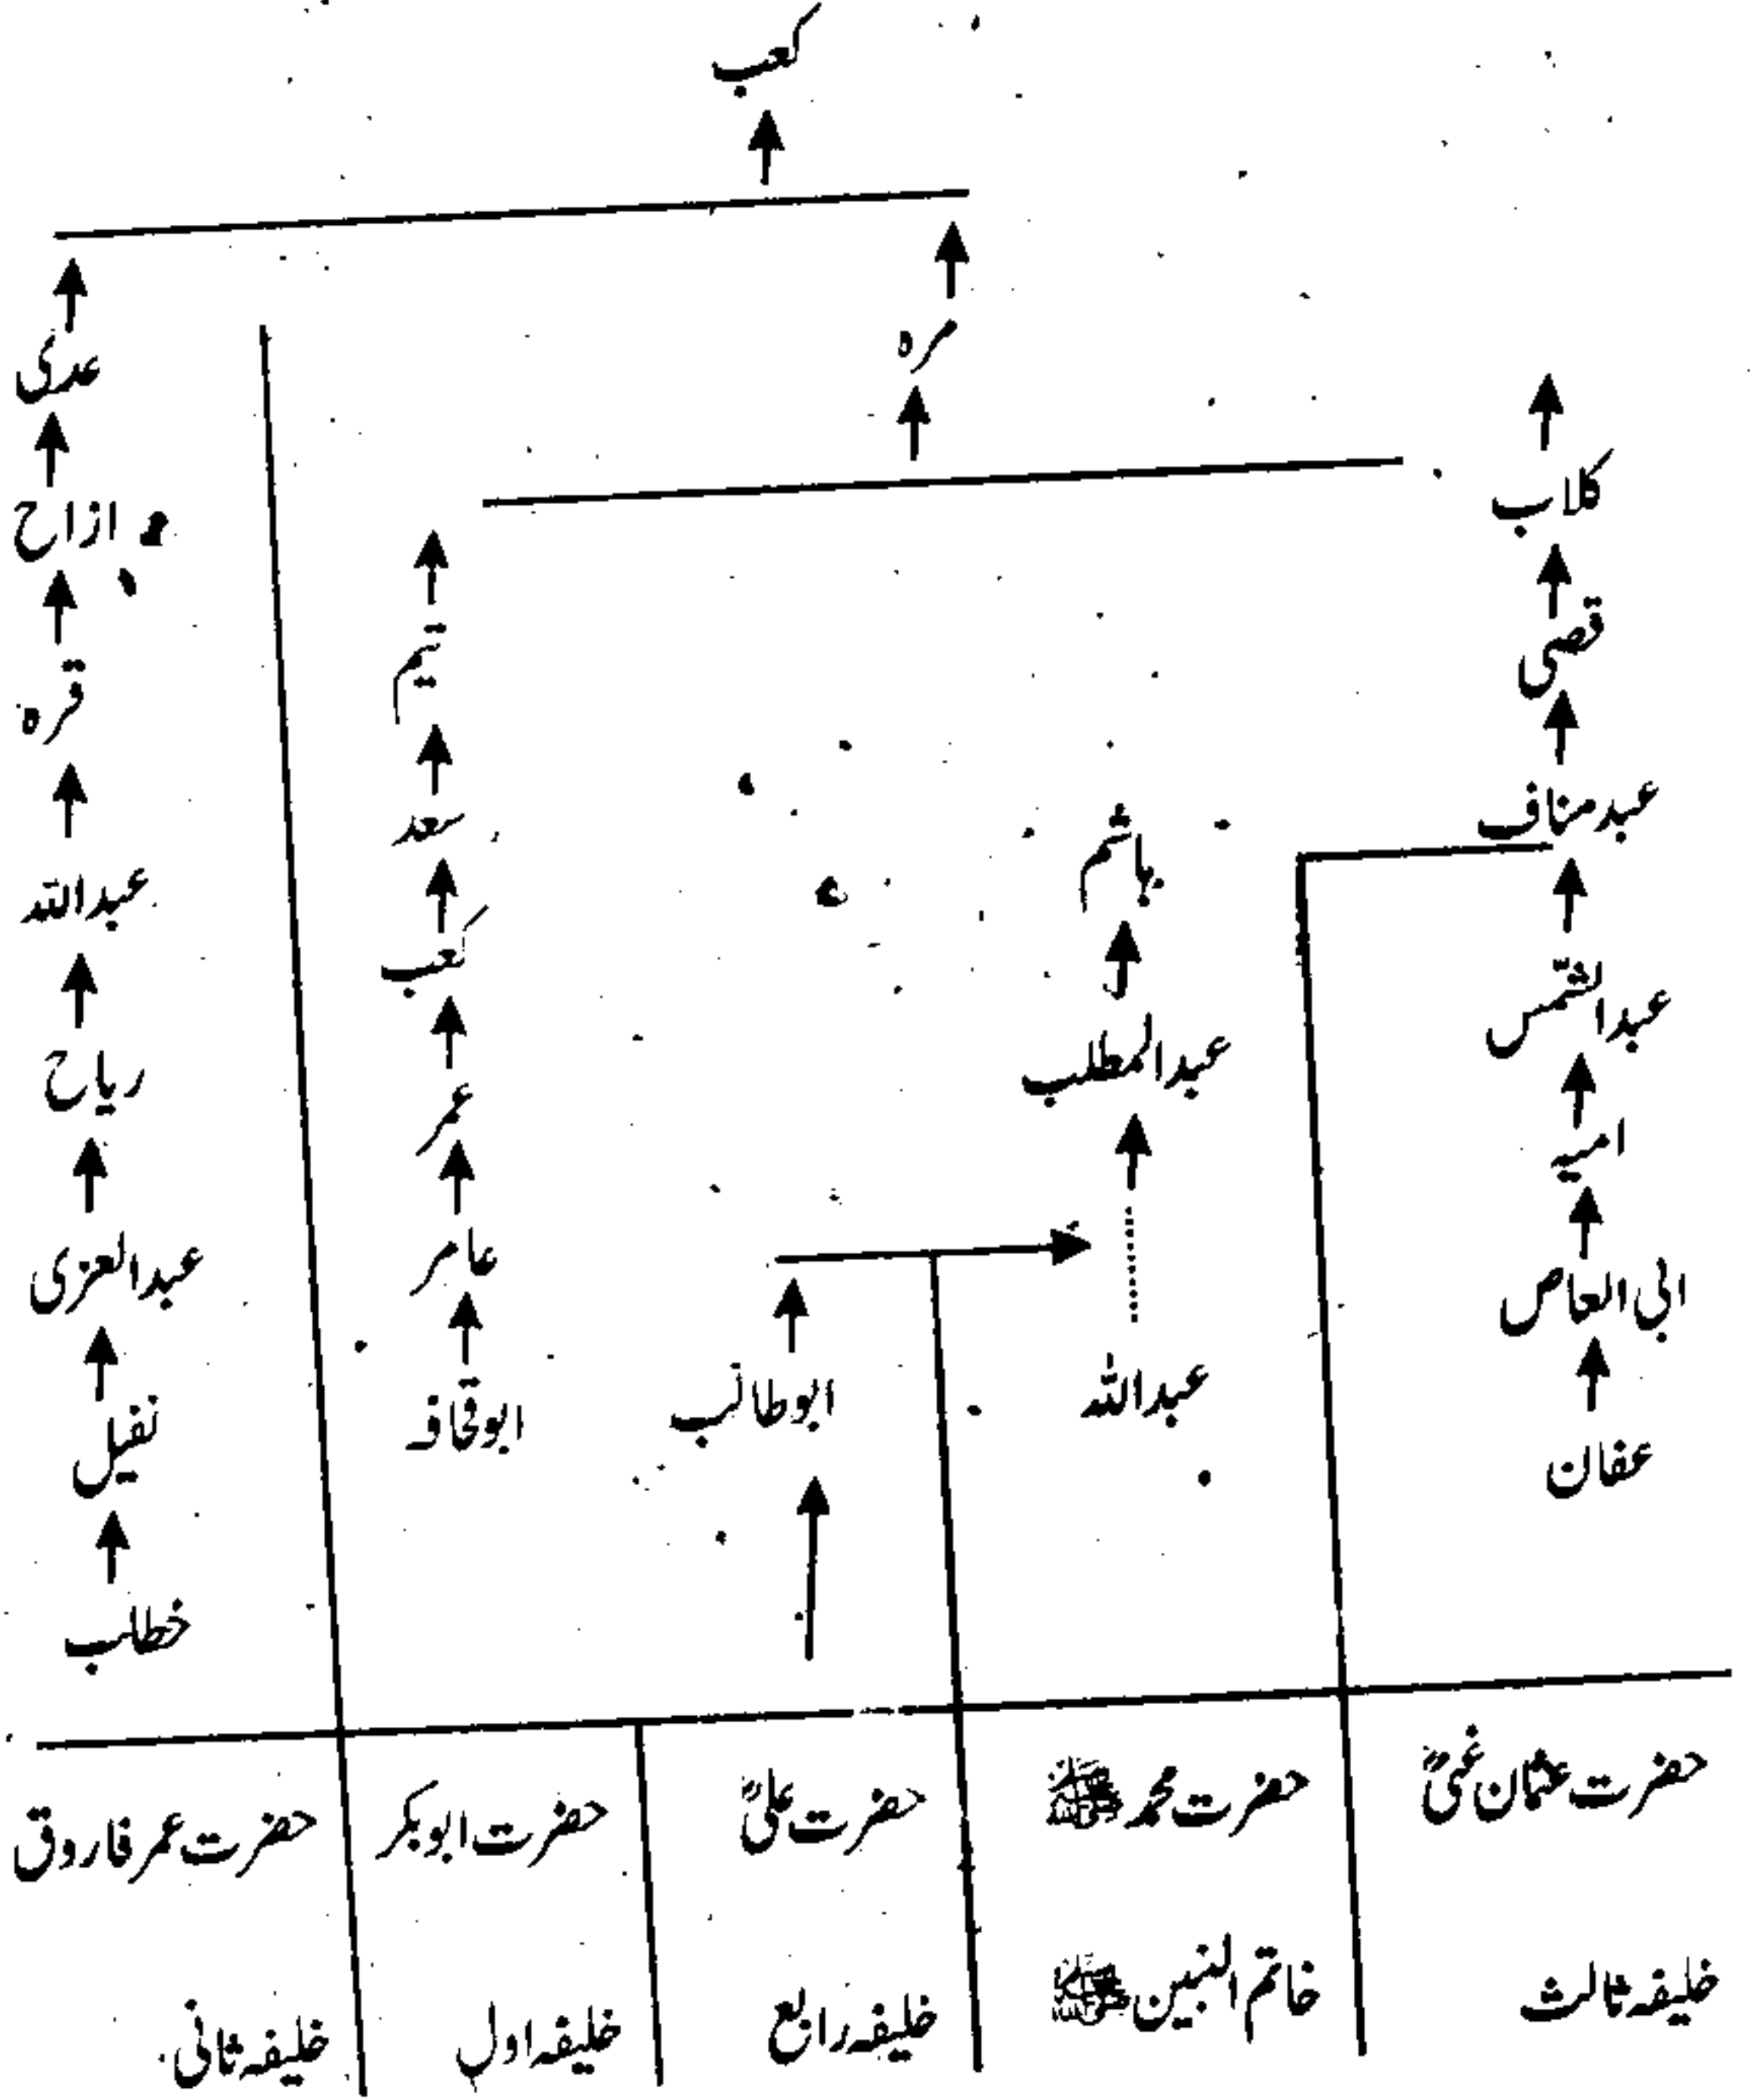 کعب
مرہ
کلاب
قصی
عبد مناف
عبدالشمس
امیہ
ابی العاص
عفان
ہاشم
عبدالمطلب
عبداللہ
ابوطالب
تیم
سعد
کعب
عمر
عامر
ابوقحافہ
عدی
ازاح
قرہ
عبداللہ
ریاح
عبدالعزی
نفیل
خطاب
حضرت عثمان غنیؓ
حضرت محمد ﷺ
حضرت علیؓ
حضرت ابوبکر
حضرت عمر فاروق
خلیفہ ثالث
خاتم النبین ﷺ
خلیفہ رابع
خلیفہ اول
خلیفہ ثانی